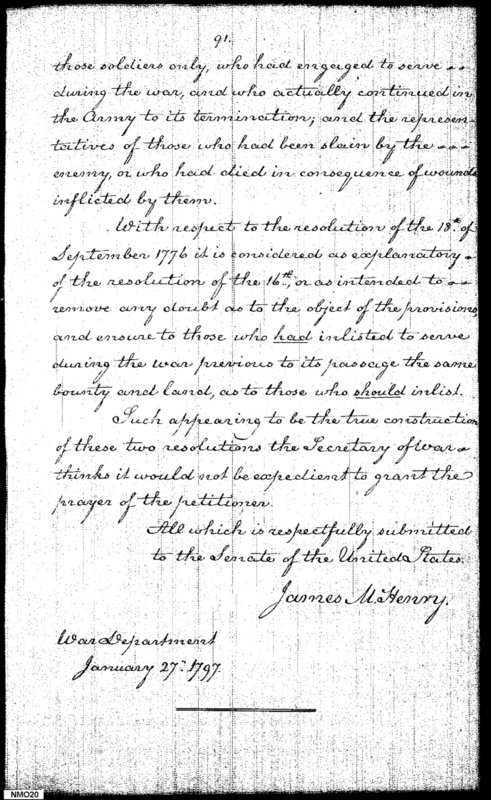 91.
those soldiers only, who had engaged to serve --
during the war, and who actually continued in
the Army to its termination; and the represen-
tatives of those who had been slain by the ---
enemy, or who had died in consequence of wounds
inflicted by them.
With respect to the resolution of the 18th of
September 1776 it is considered as explanatory -
of the resolution of the 16th, or as intended to --
remove any doubt as to the object of the provisions,
and ensure to those who had inlisted to serve
during the war previous to its passage the same
bounty and land, as to those who should inlist.
Such appearing to be the true construction
of these two resolutions the Secretary of War -
thinks it would not be expedient to grant the
prayer of the petitioner.
All which is respectfully submitted
to the Senate of the United States.
James McHenry.
War Department
January 27th 1797.
NMO20